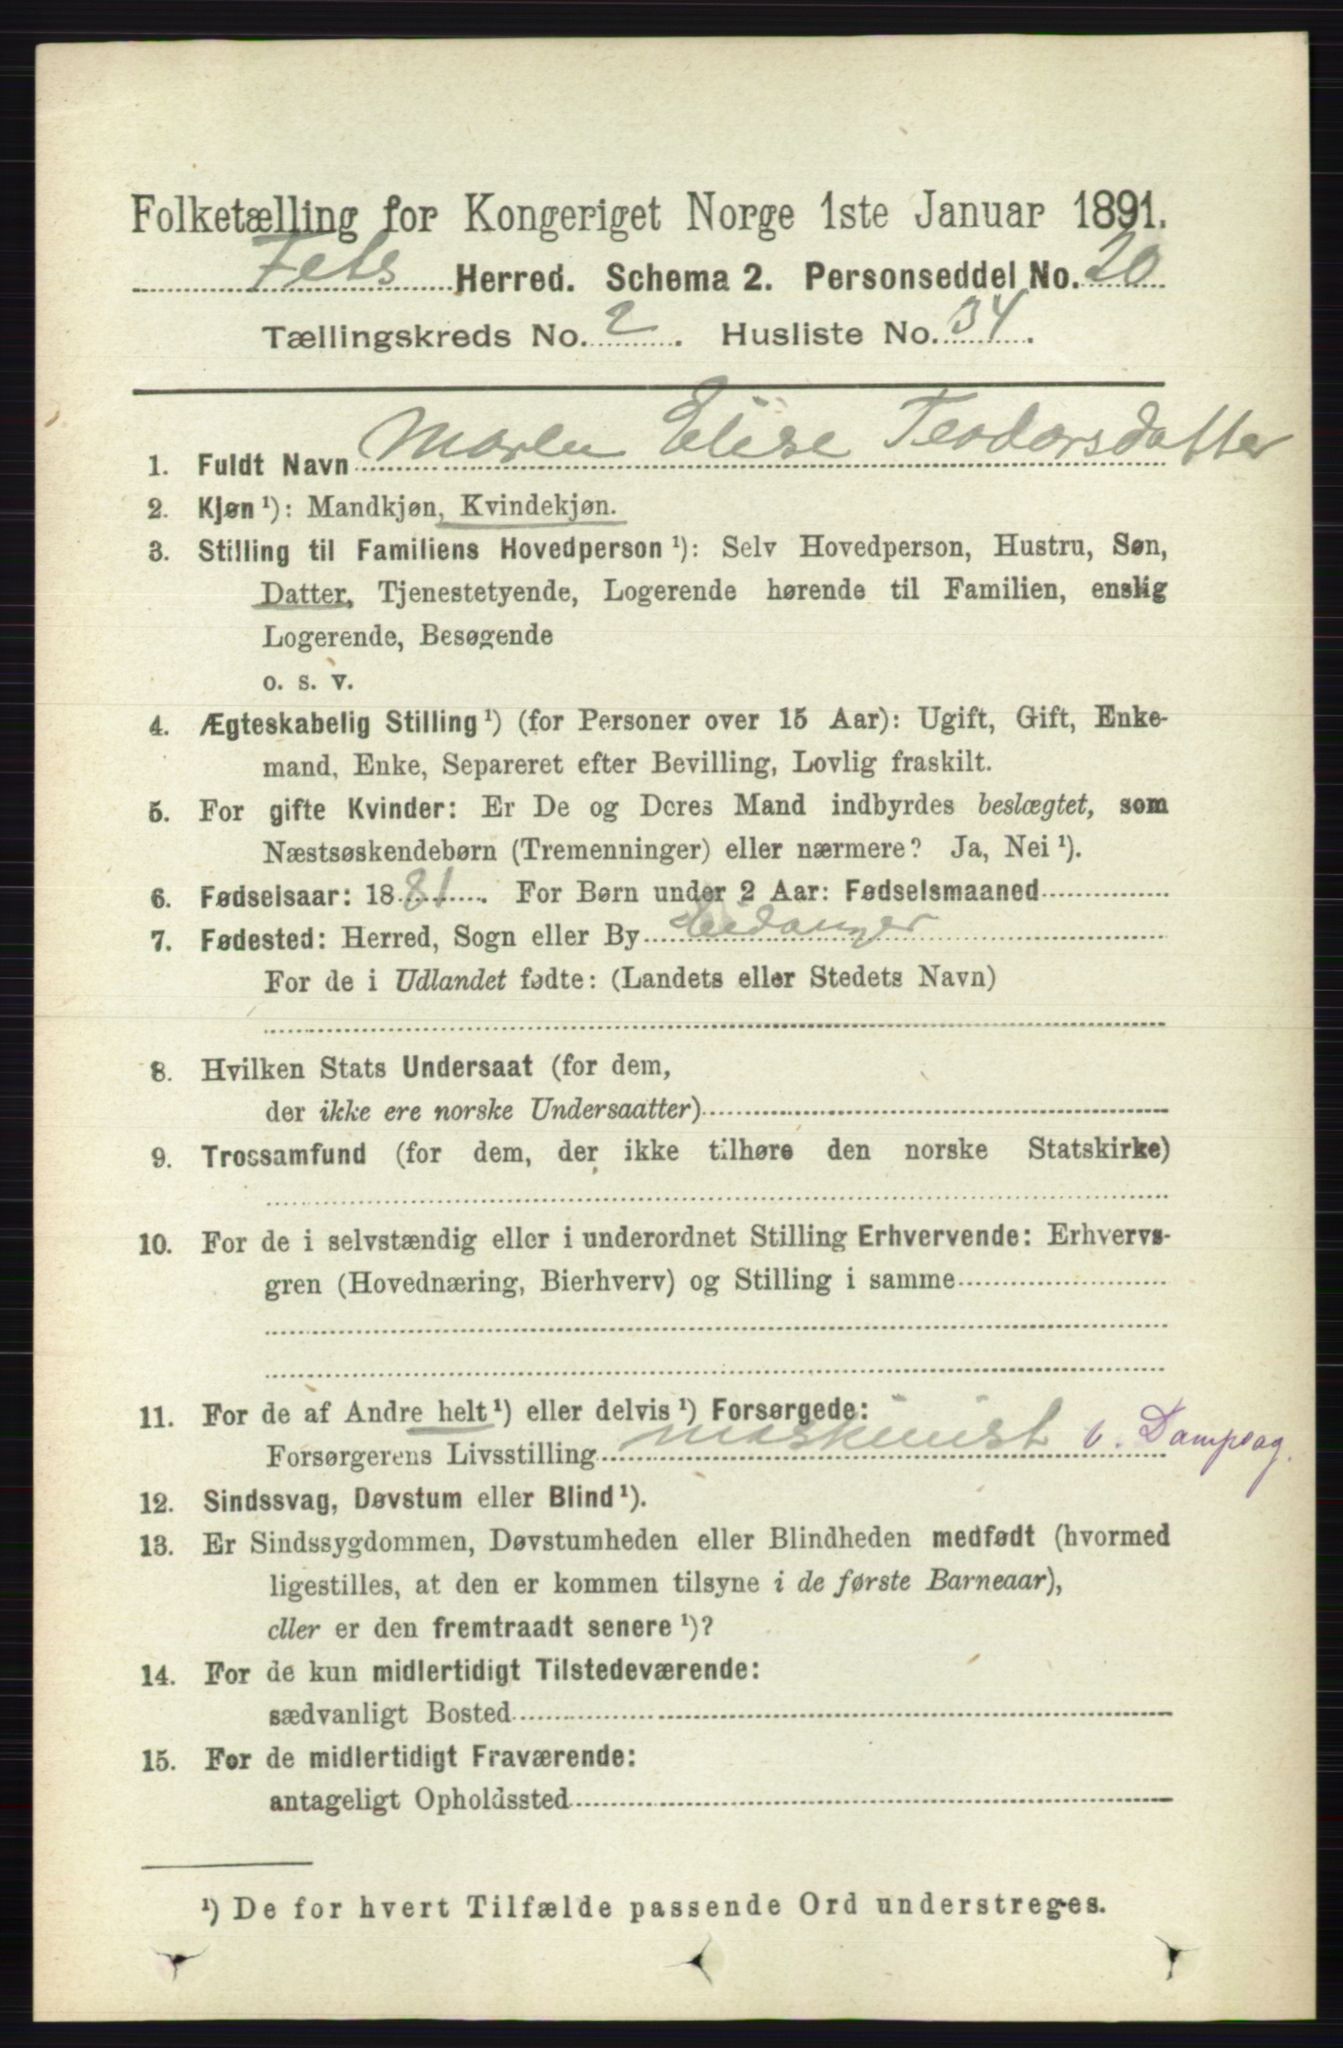 Folketælling for Kongeriget Norge 1ste Januar 1891.
Fets Herred. Schema 2. Personseddel No. 20
Tællingskreds No. 2. Husliste No. 34.
1. Fuldt Navn Maren Elise Teodorsdatter
2. Kjøn ¹): Mandkjøn, Kvindekjøn.
3. Stilling til Familiens Hovedperson ¹): Selv Hovedperson, Hustru, Søn,
Datter, Tjenestetyende, Logerende hørende til Familien, enslig
Logerende, Besøgende
o. s. v.
4. Ægteskabelig Stilling ¹) (for Personer over 15 Aar): Ugift, Gift, Enke-
mand, Enke, Separeret efter Bevilling, Lovlig fraskilt.
5. For gifte Kvinder: Er De og Deres Mand indbyrdes beslægtet, som
Næstsøskendebørn (Tremenninger) eller nærmere? Ja, Nei ¹).
6. Fødselsaar: 1881. For Børn under 2 Aar: Fødselsmaaned
7. Fødested: Herred, Sogn eller By Eidanger
For de i Udlandet fødte: (Landets eller Stedets Navn)
8. Hvilken Stats Undersaat (for dem,
der ikke ere norske Undersaatter)
9. Trossamfund (for dem, der ikke tilhøre den norske Statskirke)
10. For de i selvstændig eller i underordnet Stilling Erhvervende: Erhvervs-
gren (Hovednæring, Bierhverv) og Stilling i samme
11. For de af Andre helt ¹) eller delvis ¹) Forsørgede:
Forsørgerens Livsstilling maskinist v. Dampsag.
12. Sindssvag, Døvstum eller Blind ¹).
13. Er Sindssygdommen, Døvstumheden eller Blindheden medfødt (hvormed
ligestilles, at den er kommen tilsyne i de første Barneaar),
eller er den fremtraadt senere ¹)?
14. For de kun midlertidigt Tilstedeværende:
sædvanligt Bosted
15. For de midlertidigt Fraværende:
antageligt Opholdssted
¹) De for hvert Tilfælde passende Ord understreges.